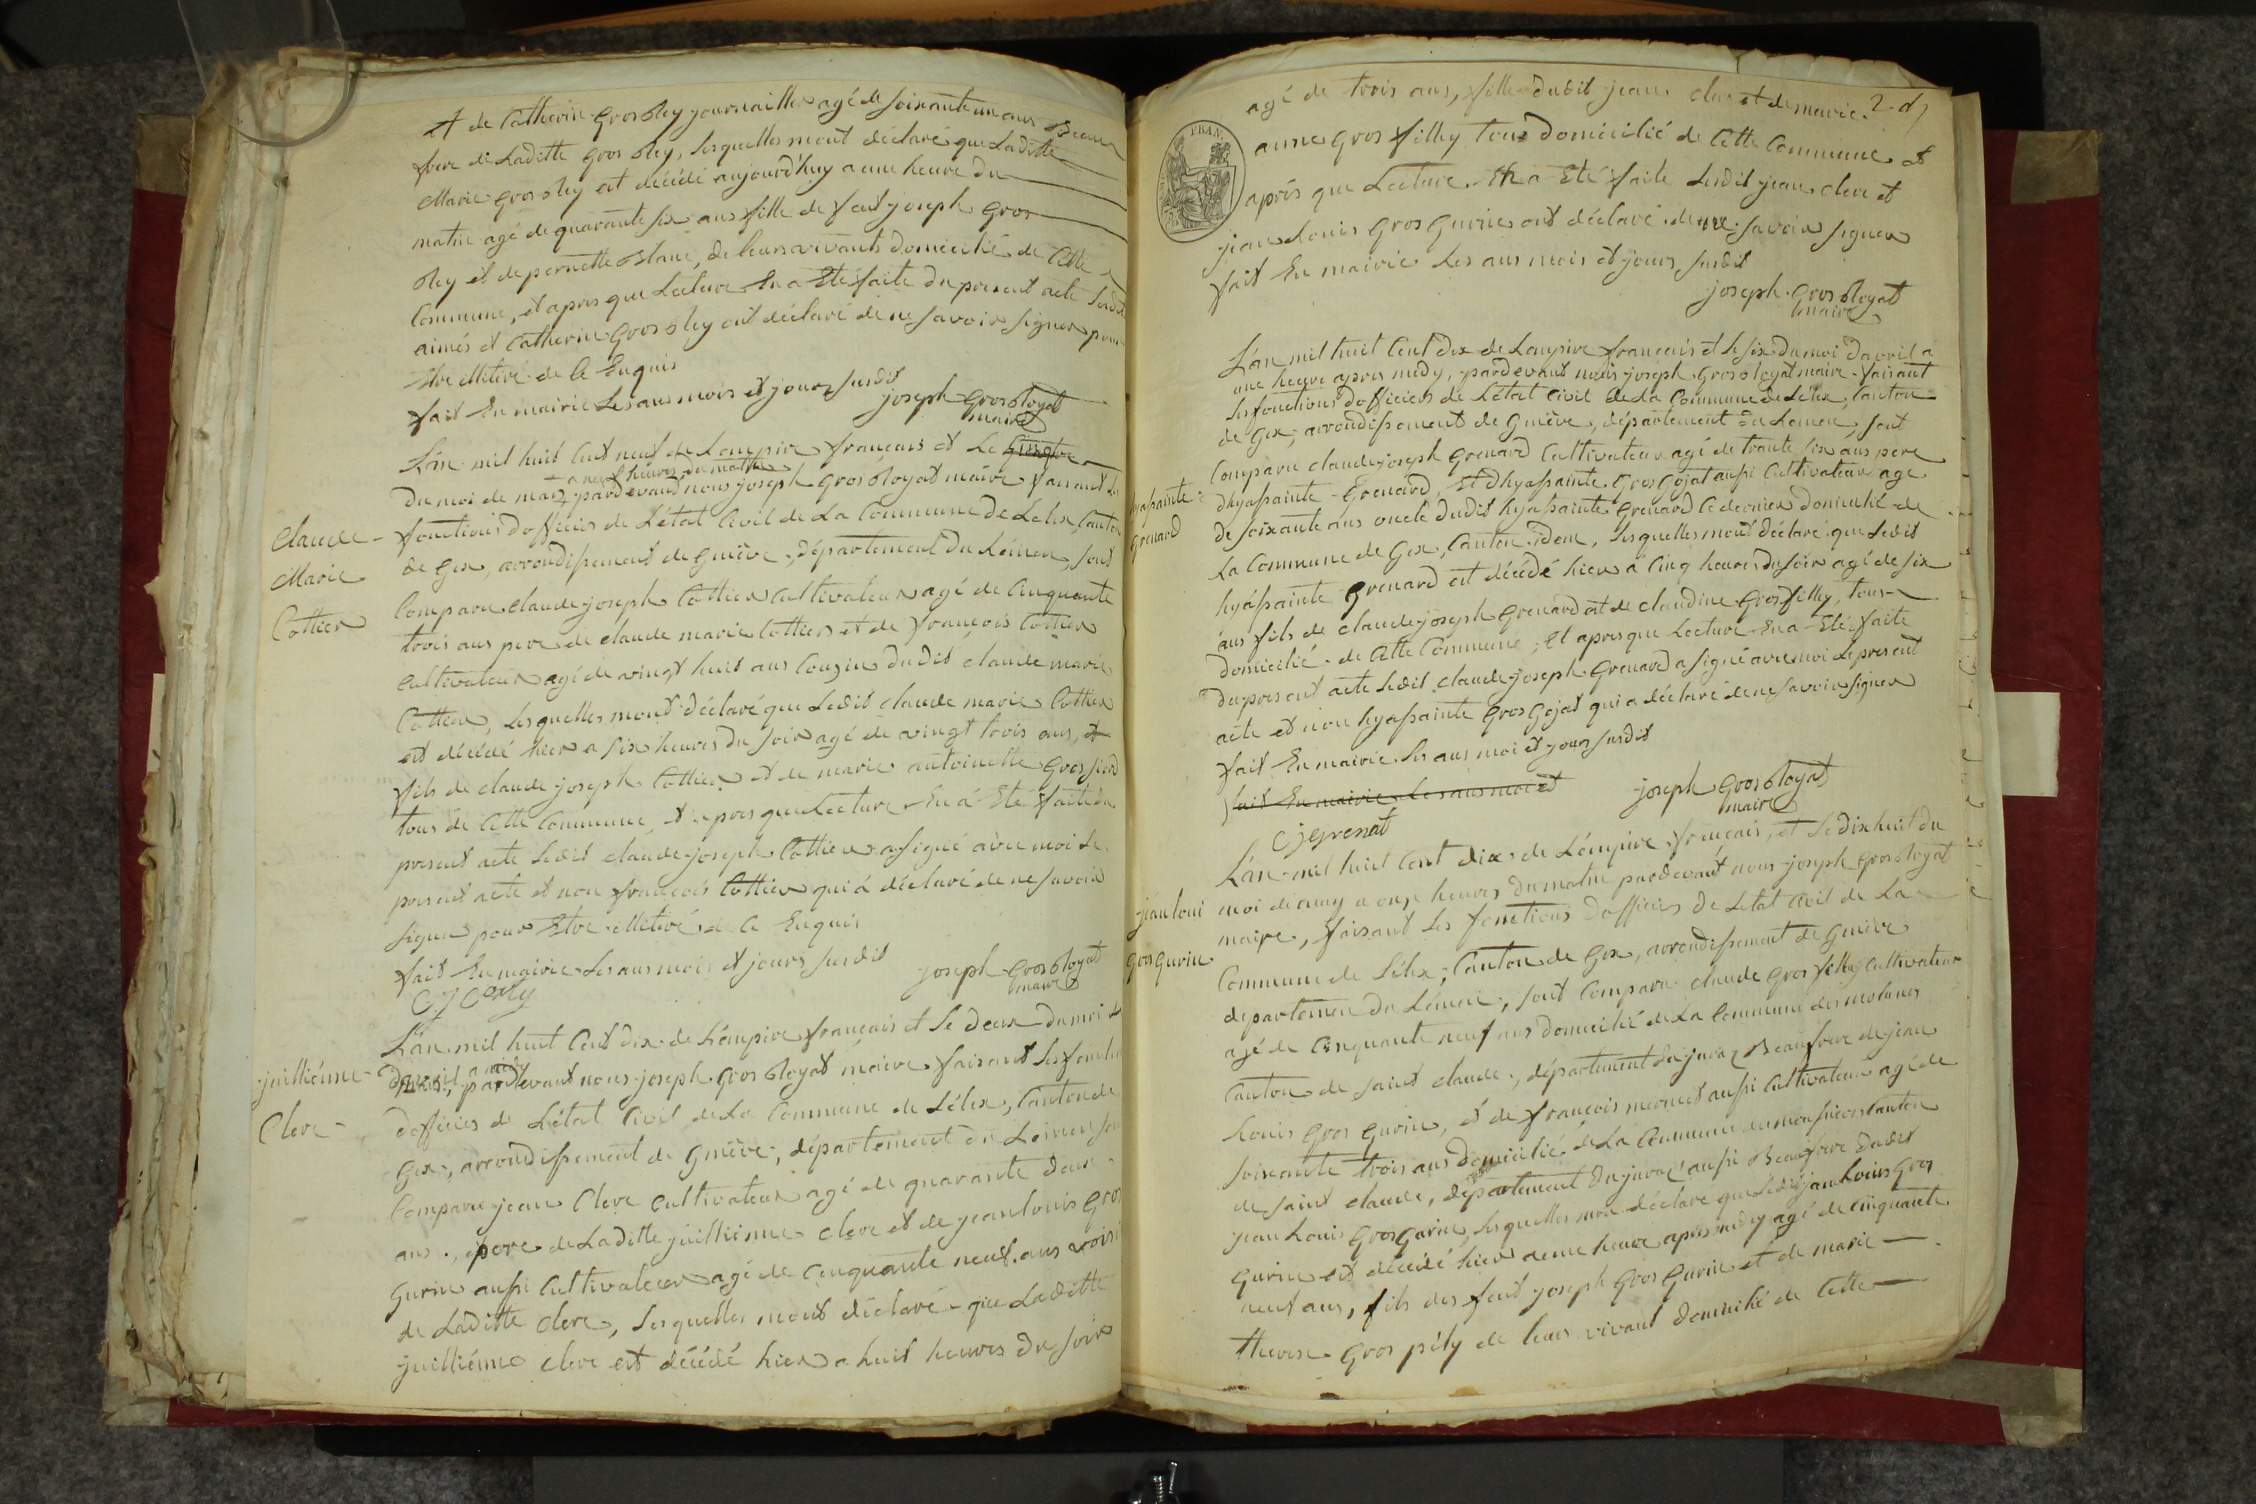 et de Catherin Grosoley journaillier agé de soixante un ans Beau
frere de Laditte Gros oley, lesquelles mont déclaré que Laditte
Marie Grosoley est décédé aujourd'huy a une heure du
matin agé de quarante six ans fille de feut joseph Gros
oley et de pernette blanc, de leurs vivants domicilié de Cette
Commune, et apres que Lecture En a Eté faite du present acte Lesdit
aimés et Catherin Grosoley ont déclaré de ne savoir signer pour
Etre de Ce Enquis
fait En mairie Les ans mois et jours susdit
joseph Grosbloyat
maire
L'an mil huit Cent neuf de Lempire français et Le
a neuf heures du matin
du moi de marz pardevand nous joseph Grosbloyat maire faisant les
Claude
Marie
Cottier
fonctions d'officies de L'état Civil de La Commune De Lelex, Canton
de Gex, arrondissement de Genève, département Du Léman, sont
Comparu claude joseph Cottier Cultivateur agé de Cinquante
trois ans pere de claude marie Cottier et de françois Cottier
Cultivateur agé de vingt huit ans Cousin dudit claude marie
Cottier, lesquelles mont déclaré que Ledit claude marie Cottier
est décédé hier a six heures du soir agé de vingt trois ans, et
fils de claude joseph Cottier et de marie antoinette Gros
tous de Cette Commune et apres que Lecture En a Eté faite du
present acte Ledit claude joseph Cottier a signé avec moi Le
present acte et non françois Cottier qui a déclaré de ne savoir
signer pour Etre de Ce Enquis
fait En mairie Les ans mois et jours susdit
joseph Grosbloyat
maire
L'an mil huit Cent dix de Lempire français et Le deux du moi
juilliénne
Clere
davril a midy, pardevant nous joseph Grosbloyat maire faisant les fonctions
d'officies de L'état Civil de La Commune de Lélex, Canton de
Gex, arrondissement de Genève, département du Leman sont
Comparu jean Clere Cultivateur agé de quarante deux
ans, pere de Laditte juilliénne Clere et de jean louis Gros
Gurin aussi Cultivateur agé de Cinquante neuf ans voisin
de Laditte Clere, lesquelles mont déclaré que Laditte
juilliénne Clere est décédé hier a huit heures du soir
2. d
agé de trois ans, fille dudit jean clere et de marie
FRAN.
anne Gros filley tous domicilié de Cette Commune et
après que Lecture En a Eté faite Lesdit jean Clere et
jean Louis Gros Gurin ont déclaré de ne savoir signer
fait En mairie Les ans mois et jours susdit
joseph Grosbloyat
maire
L'an mil huit Cent dix de Lempire français et le six du moi davril a
une heure apres midy, pardevant nous joseph Grosbloyat maire faisant
les fonctions d'officies de L'état Civil de La Commune de Lélex, Canton
de Gex, arrondissement de Genève, département du Leman, sont
hyassainte
Grenard
Comparu claude joseph Grenard Cultivateur agé de trante six ans pere
dhyassainte Grenard, et dhyassainte Gros Gojat aussi Cultivateur agé
de soixante ans oncle dudit hyassainte Grenard Ce dernier domicilié de
La Commune de Gex, Canton idem, lesquelles mont déclaré que Ledit
hyassainte Grenard est décédé hier a Cinq heures du soir agé de six
ans fils de claude joseph Grenard et de claudine Gros filley, tous
domicilié de Cette Commune, et apres que Lecture En a Eté faite
du present acte Ledit claude joseph Grenard a signé avec moi Le present
acte et non hyassainte Gros Gojat qui a déclaré de ne savoir signer
fait En mairie les ans moi et jours susdit
fait En mairie Les ans moi et
joseph Grosbloyat
maire
Cj grenat
L'an mil huit Cent dix de Lémpire français, et le dixhuit du
jean loui
Gros Gurin
moi de may a onze heures du matin pardevant nous joseph Grosbloyat
maire, faisant les fonctions d'officies de Létat Civil de La
Commune de Lélex, Canton de Gex, arrondissement de Genève
departemen du Léman, sont Comparu claude Gros filley Cultivateur
agé de Cinquante neuf ans domicilié de La Commune des molunes
Canton de saint claude, département du juraz Beaufrere de jean
Louis Gros Gurin, et de françois mermet aussi Cultivateur agé de
soixante trois ans domicilié de La Commune de Canton
de saint claude, département du juraz aussi Beaufrere dudit
jean Louis Gros Gurin, lesquelles mon déclare que Ledit jean Louis Gros
Gurin est décédé hier a une heure apres midy agé de cinquante
neuf ans, fils des feut joseph Gros Gurin et de marie
therese Gros pély de leurs vivant domicilié de Cette